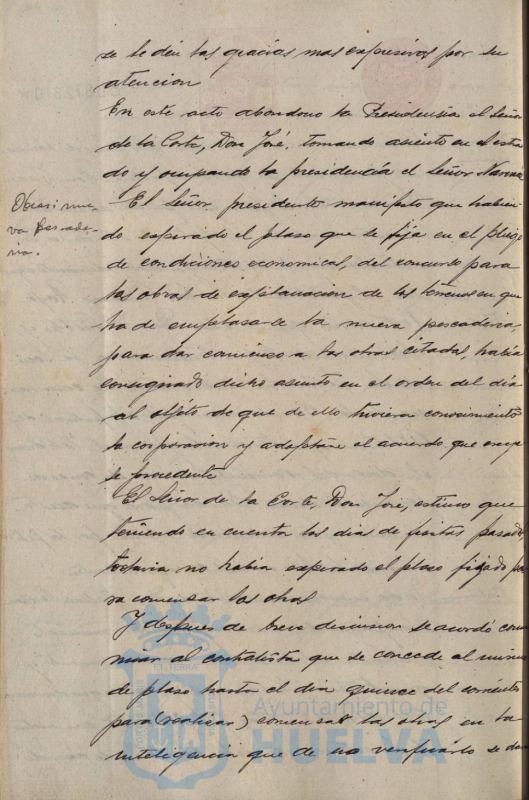 se le den las gracias mas expresivas por su
atencion
En este acto abandono la Presidensia el Señor
de la Corte, Don José, tomando asiento en el estra
do y ocupando la presidencia el Señor
Obras nue-
va Pescade-
ria.
El Señor presidente manifesto que habien
do expirado el plaso que se fija en el pliego
de condiciones economicas, del concurso para
las obras de explanacion de los terrenos en que
ha de emplasarse la nueva pescaderia,
para dar comienso a las obras citadas, habia
consignado dicho asunto en el orden del dia
al objeto de que de ello tuviera conocimiento
la corporacion y adoptase el acuerdo que
se procedente
El Señor de la Corte, Don José, estimo que
teniendo en cuenta los dias de fiestas pasados
todavia no habia expirado el plaso figado pa
ra comensar las obras
Y despues de breve discusion se acordó comu
nicar al contratista que se concede al mismo
de plaso hasta el dia quince del corriente
para (realizar) comensar las obras en la
inteligencia que de no verificarlo se
Ayuntamiento de
HUELVA